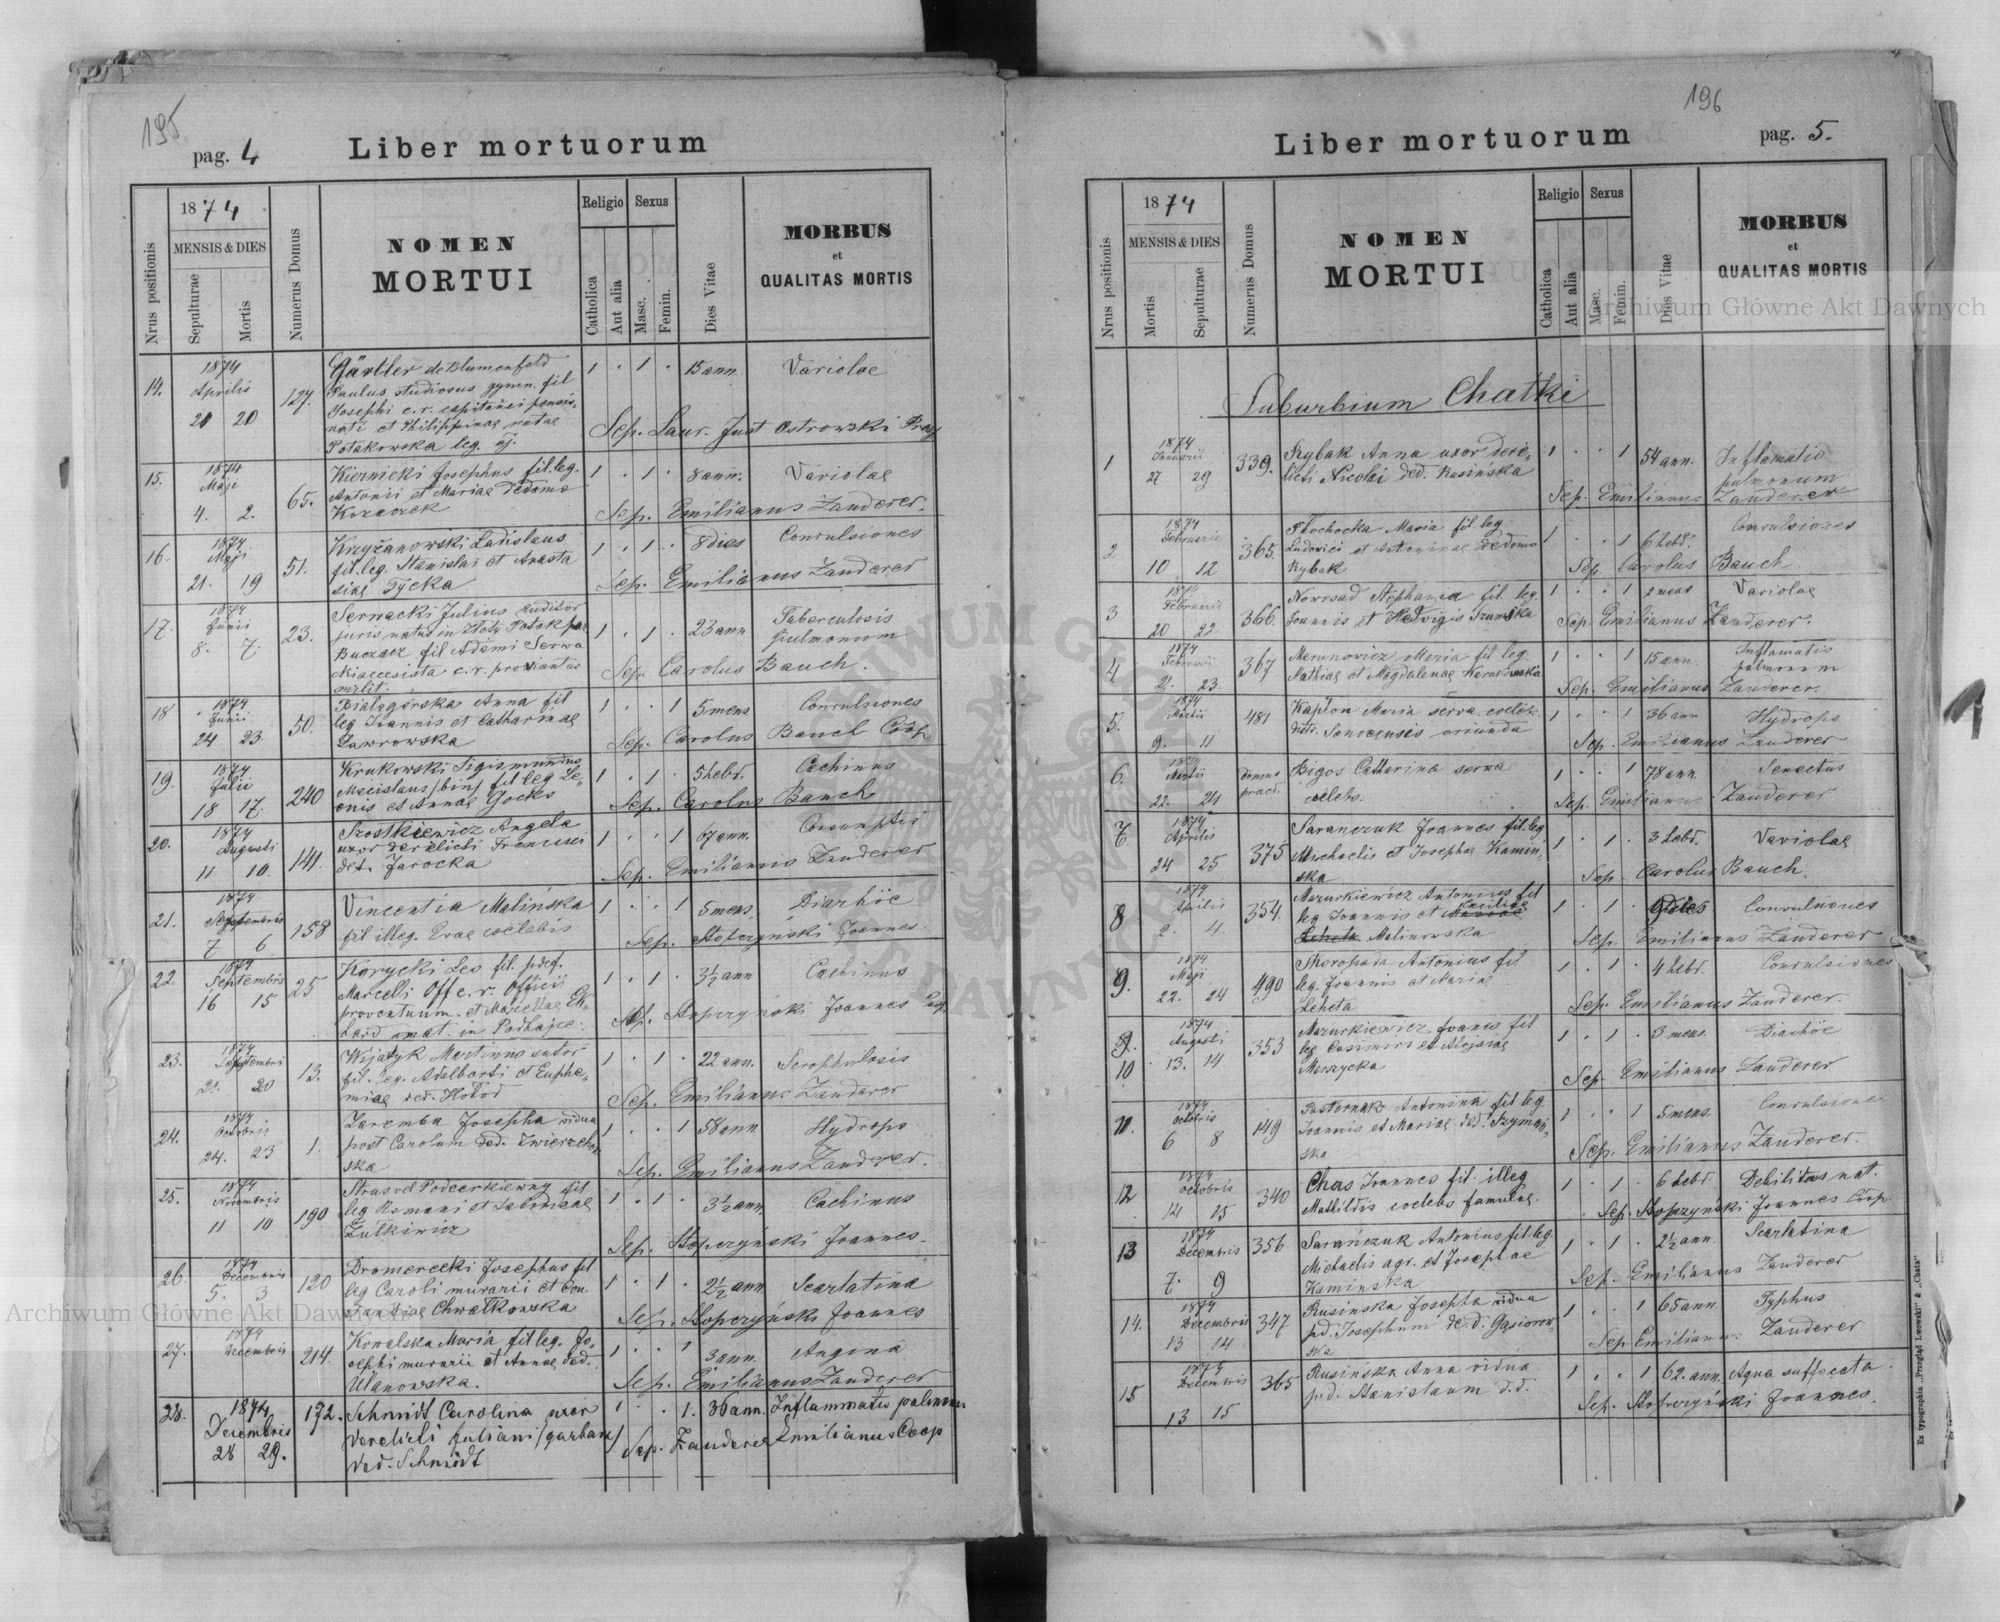 195
pag. 4
Liber mortuorum
Nrus positionis
1874
MENSIS & DIES
Sepulturae
Mortis
Numerus Domus
NOMEN
MORTUI
Religio
Catholica
Aut alia
Sexus
Masc.
Femin.
Dies Vitae
MORBUS
et
QUALITAS MORTIS
14. 1874 Aprilis 21 20 127.
Gärtler de Blumenfeld
Paulus studiosus gymn. fil
Josephi c. r. capitanei pensio-
nati et Philippinae natae
Potakowska leg. cj.
1 . 1 . 15 ann. Variolae
Sep. Laur. Just Ostrowski
15. 1874 Maji 4. 2. 65.
Kiernicki Josephus fil. leg.
Antonii et Mariae de domo
Kozaczek
1 . 1 . 8 ann. Variolae
Sep. Emilianus Zanderer.
16. 1874 Maji 21. 19 51.
Krzyżanowski Ladislaus
fil. leg. Stanislai et Anasta
siae Tycka
1 . 1 . 8 dies Convulsiones
Sep. Emilianus Zanderer
17. 1874 Junii 8. 7. 23.
Serwacki Julius auditor
juris natus in Złoty Potok
Buczacz fil Adami Serwa
cki accesista c. r. proviantus
milit.
1 . 1 . 23 ann Tuberculosis
pulmonum
Sep. Carolus Bauch.
18 1874 Junii 24 23 50.
Białogórska Anna fil
leg Joannis et Catharinae
Ławrowska
1 . . 1 5 mens Convulsiones
Sep. Carolus Bauch Coop.
19. 1874 Julii 18 17. 240
Krukowski Sigismundus
Mecislaus /bin/ fil leg Le-
onis et Annae Gocks
1 . 1 . 5 hebd. Cachinus
Sep. Carolus Bauch
20. 1874 Augusti 11 10. 141.
Szostkiewicz Angela
uxor derelicti Francisci
det. Jarocka
1 . . 1 67 ann. Consumptio
Sep. Emilianus Zanderer
21. 1874 Septembris 7 6 158
Vincentia Malińska
fil illeg. Evae coelebis
1 . . 1 5 mens. Diarhöe
Sep. Stopczyński Joannes.
22. 1874 Septembris 16 15 25
Korycki Leo fil. pdef.
Marcelli Off c. r. Officii
proventuum. et Marcellae
nat. in Podhajce.
1 . 1 . 3½ ann Cachinus
Sep. Stopczyński Joannes
23. 1874 Septembris 21. 20 13.
Wijatyk Martinus sutor
fil. leg. Adalberti et Euphe-
miae ded. Hołod
1 . 1 . 22 ann. Scrophulosis
Sep. Emilianus Zanderer
24. 1874 Octobris 24. 23 1.
Zaremba Josepha vidua
post Carolum ded. Zwierzchow
ska
1 . . 1 58 ann Hydrops
Sep. Emilianus Zanderer.
25. 1874 Novembris 11 10 190
fil
leg Romani et Salomeae
Żułkiewicz
1 . 1 . 3½ ann. Cachinus
Sep. Stopczyński Joannes.
26. 1874 Decembris 5. 3 120
Dromerecki Josephus fil
leg Caroli murarii et Con-
stantiae Chwałkowska
1 . 1 . 2½ ann Scarlatina
Sep. Stopczyński Joannes
27. 1874 Decembris 214.
Kowalska Maria fil leg. Jo-
sephi murarii et Annae ded.
Ulanowska.
1 . . 1 3 ann. Angina
Sep. Emilianus Zanderer
28. 1874 Decembris 28 29. 172.
Schmidt Carolina uxor
derelicti Juliani /garbarz/
ded. Schmidt
1 . . 1. 36 ann. Inflammatio pulmonum
Sep. Zanderer Emilianus Coop
196
Liber mortuorum
pag. 5.
Nrus positionis
1874
MENSIS & DIES
Mortis
Sepulturae
Numerus Domus
NOMEN
MORTUI
Religio
Catholica
Aut alia
Sexus
Masc.
Femin.
Dies Vitae
MORBUS
et
QUALITAS MORTIS
Suburbium Chatki
1 1874 Januarii 27 29 339.
Rybak Anna uxor dere-
licti Nicolai ded. Rusińska
1 . . 1 54 ann. Inflamatio
pulmonum
Sep. Emilianus Zanderer
2 1874 Februarii 10 12 365.
Płochocka Maria fil leg
Ludovici et Antoninae de domo
Rybak
1 . . 1 6 hebd. Convulsiones
Sep. Carolus Bauch.
3 1874 Februarii 20 22. 366.
Nowosad Stephania fil. leg
Joannis et Hedvigis Szumska
1 . . 1 2 mens Variolae
Sep. Emilianus Zanderer.
4 1874 Februarii 21. 23. 367
Merunowicz Maria fil leg
Mathiae et Magdalenae
1 . . 1 15 ann. Inflamatio
pulmonum
Sep. Emilianus Zanderer.
5. 1874 Martii 9. 11 481
Kapłon Maria serva coelebs
distr. Sanocensis oriunda
1 . . 1 36 ann Hydrops
Sep. Emilianus Zanderer
6. 1874 Martii 22. 24 domus praed.
Bigos Catharina serva
coelebs.
1 . . 1 78 ann. Senectus
Sep. Emilianus Zanderer
7. 1874 Aprilis 24 25 375
Sarańczuk Joannes fil. leg
Michaelis et Josephae Kamin-
ska
1 . 1 . 3 hebd. Variolae
Sep. Carolus Bauch.
8 1874 Aprilis 2. 4. 354.
Mazurkiewicz Antonius fil
leg Joannis et Mariae Ceciliae
Leheta Malinowska
1 . 1 . 9 dies Convulsiones
Sep. Emilianus Zanderer
9. 1874 Maji 22. 24 490
Skoropada Antonius fil
leg. Joannis et Mariae
Leheta
1 . 1 . 4 hebd. Convulsiones
Sep. Emilianus Zanderer.
10 1874 Augusti 13. 14 353
Mazurkiewicz Joannes fil
leg Casimiri et Aloysiae
Maszycka
1 . 1 . 3 mens. Diarhöe
Sep. Emilianus Zanderer
11. 1874 Octobris 6 8 149
Pasternak Antonina fil leg
Joannis et Mariae ded. Szyman-
ska
1 . . 1 5 mens. Convulsiones
Sep. Emilianus Zanderer.
12 1874 Octobris 14 15 340
Chas Joannes fil. illeg
Mathildis coelebs famulae.
1 . 1 . 6 hebd Debilitas nat.
Sep. Stopczyński Joannes Coop
13 1874 Decembris 7. 9 356
Sarańczuk Antonius fil. leg.
Michaelis agr. et Josephae
Kaminska
1 . 1 . 2½ ann. Scarlatina
Sep. Emilianus Zanderer
14. 1874 Decembris 13 14 347
Rusinska Josepha vidua
pd. Josephum de. d. Gąsiorow-
ska
1 . . 1 65 ann. Typhus
Sep Emilianus Zanderer
15 1874 Decembris 13 15 365
Rusińska Anna vidua
pd. Stanislaum d. d.
1 . . 1 62. ann. Aqua suffocata.
Sep. Stopczyński Joannes.
Ex typographia „Przegląd Lwowski" & „Chata"
Archiwum Główne Akt Dawnych
Archiwum Główne Akt Dawnych
ARCHIWUM GŁÓWNE AKT DAWNYCH